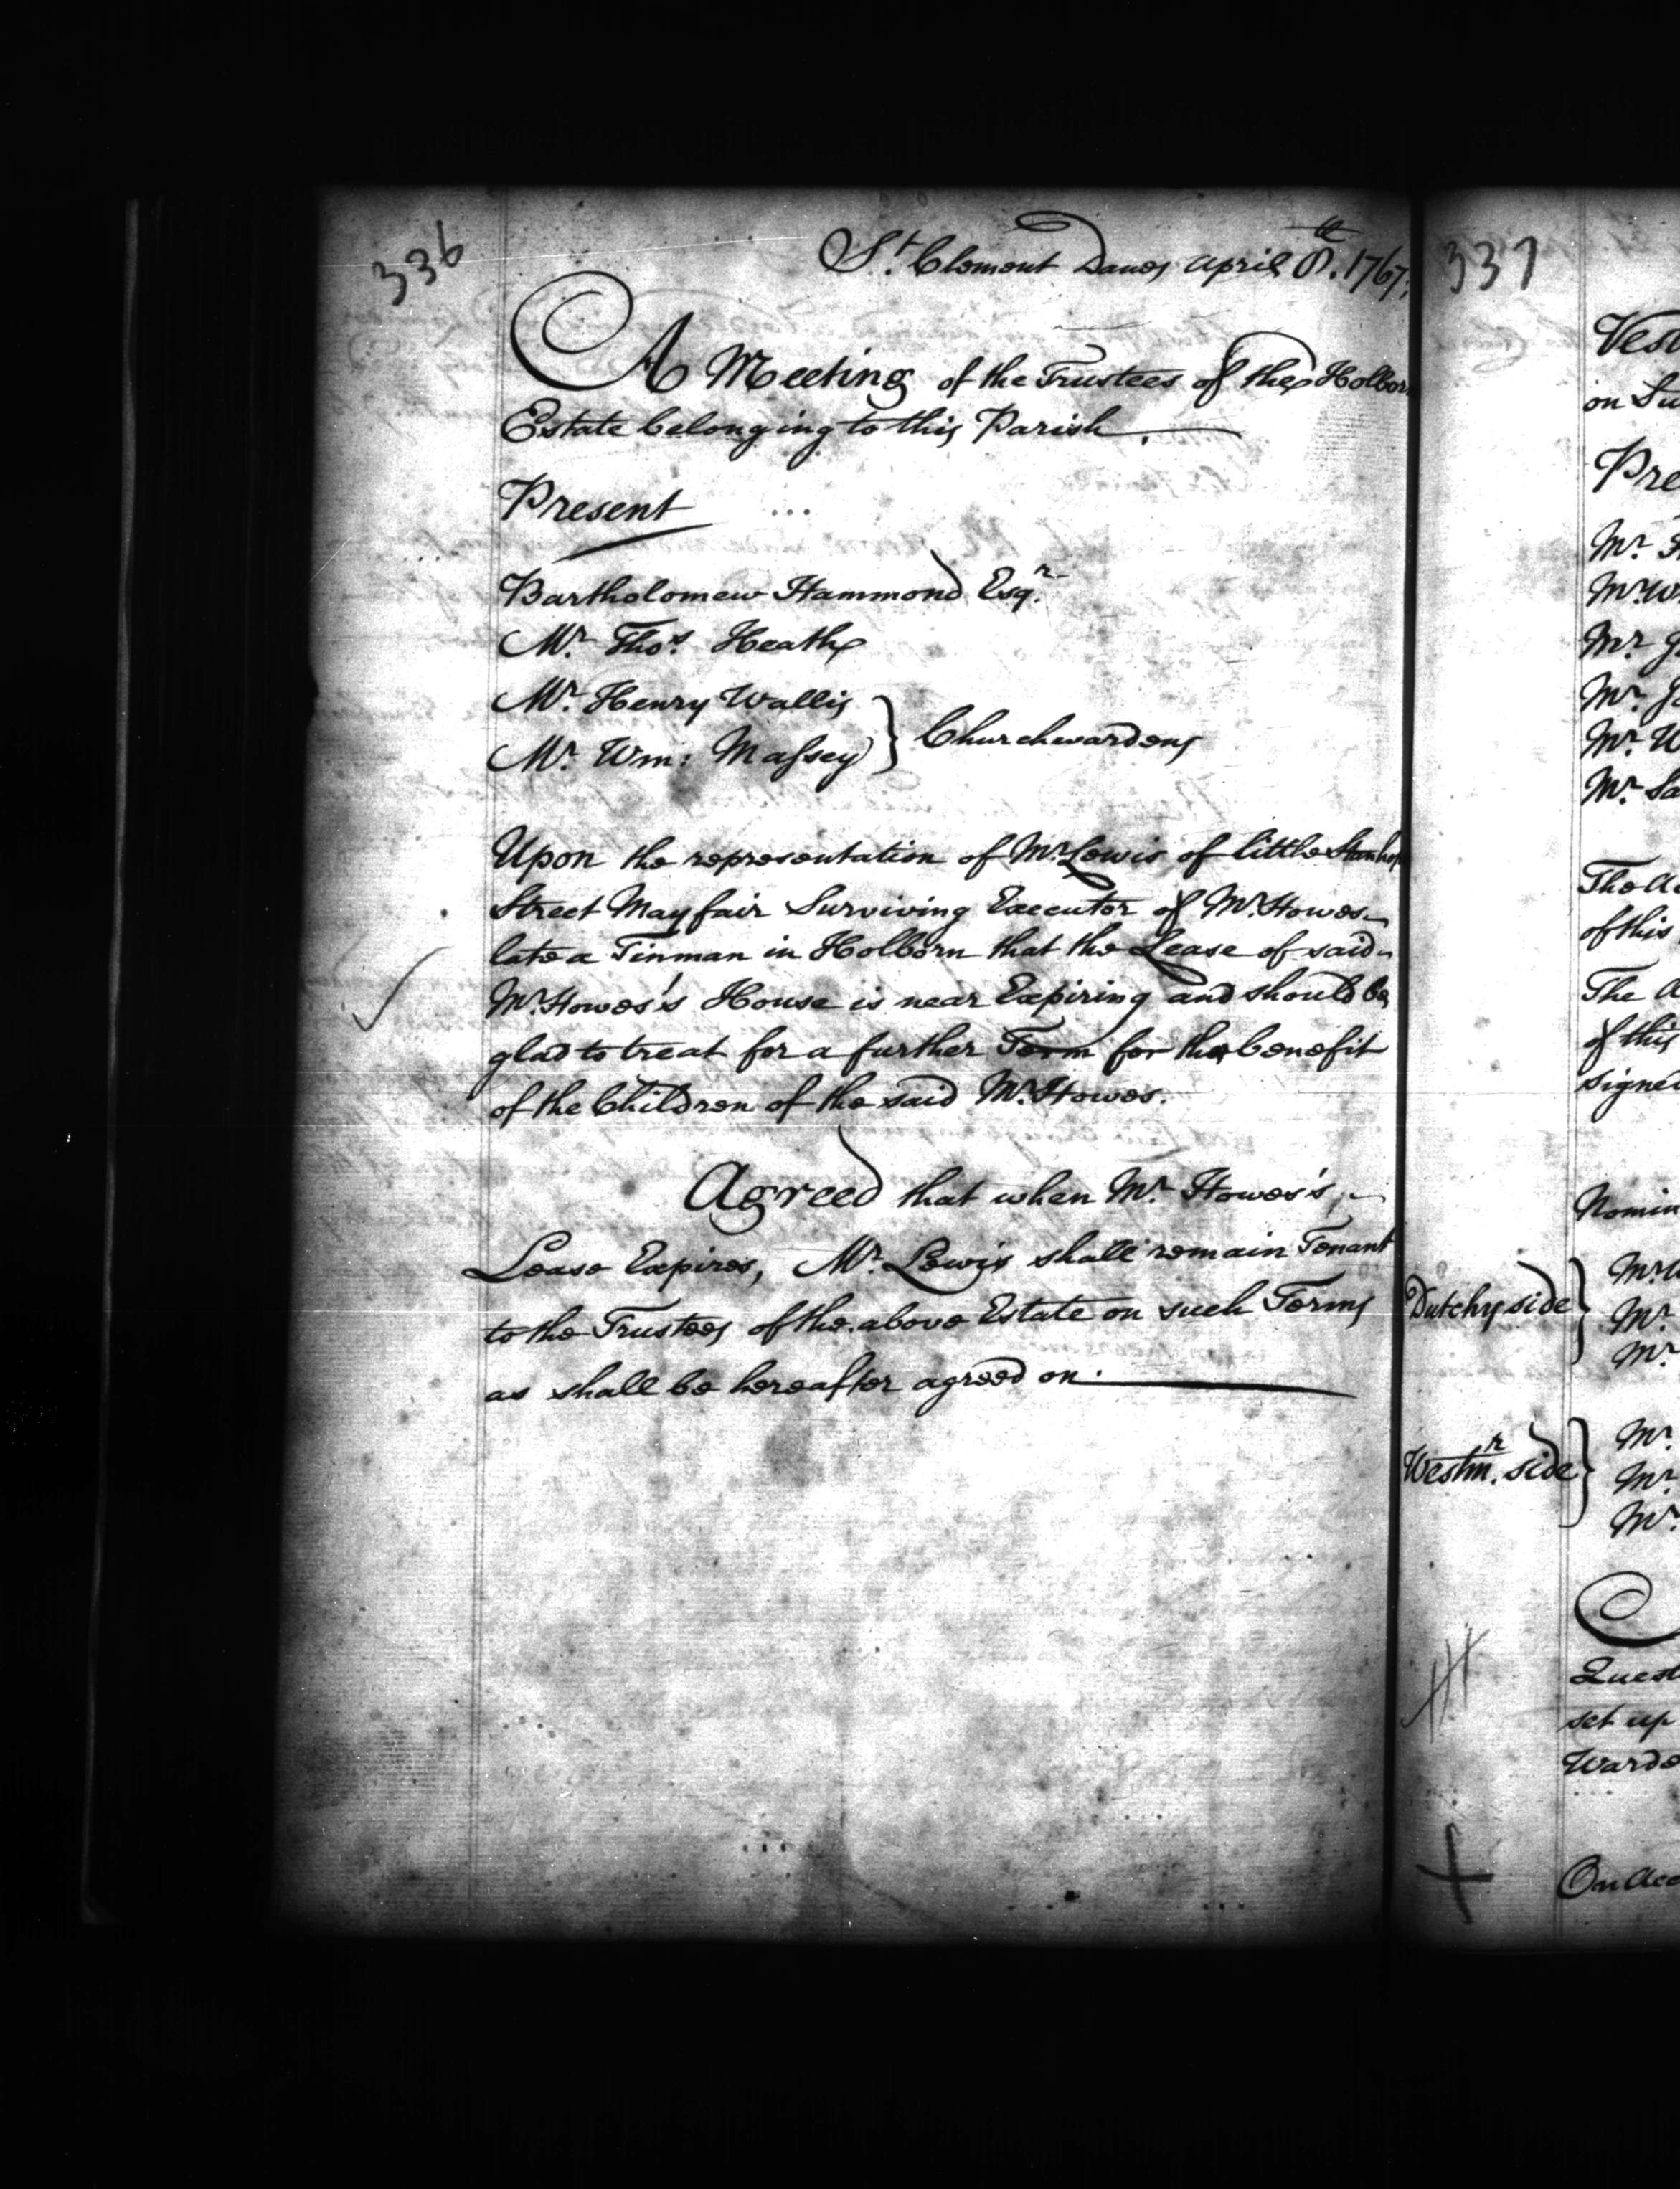 336
St. Clement Danes April 8th. 1767.
A Meeting of the Trustees of the Holborn
Estate belonging to this Parish.
Present
Bartholomew Hammond Esqr.
Mr. Thos. Heath
Mr. Henry Wallis
Mr. Wm: Massey } Churchwardens
Upon the representation of Mr. Lewis of little Stanhope
Street Mayfair Surviving Executor of Mr. Howes
late a Tinman in Holborn that the Lease of said
Mr. Howes's House is near Expiring and should be
glad to treat for a further Term for the benefit
of the Children of the said Mr. Howes.
Agreed that when Mr. Howes's
Lease Expires, Mr. Lewis shall remain Tenant
to the Trustees of the above Estate on such Terms
as shall be hereafter agreed on.
337
Vest
on Su
Pre
Mr.
Mr. W
Mr.
Mr.
Mr. W
Mr. Sa
The
of this
The
of this
signed
Nomin
Dutchy side } Mr.
Mr.
Mr.
Westmr. side } Mr.
Mr.
Mr.
Quest
set up
Warde
On Acc